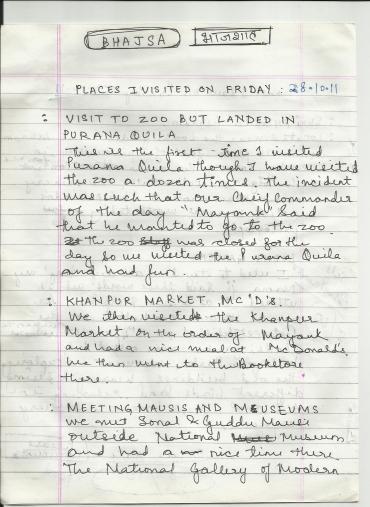 BHAJSA भाजशाह
PLACES I VISITED ON FRIDAY : 28.10.11
: VISIT TO ZOO BUT LANDED IN
PURANA QUILA
This is the first time I visited
Purana Quila though I have visited
the zoo a dozen times. The incident
was such that our Chief Commander
of the day "Mayank" said
that he wanted to go to the zoo.
the zoo was closed for the
day so we visited the Purana Quila
and had fun.
: KHANPUR MARKET, MC'D'S.
We then visited the Khanpur
Market on the order of Mayank
and had a nice meal at McDonald's.
We then went to the Bookstore
there.
: MEETING MAUSIS AND MEUSEUMS
We met Sonal & Guddu Mausi
outside National Museum
and had a nice time there
The National Gallery of Modern